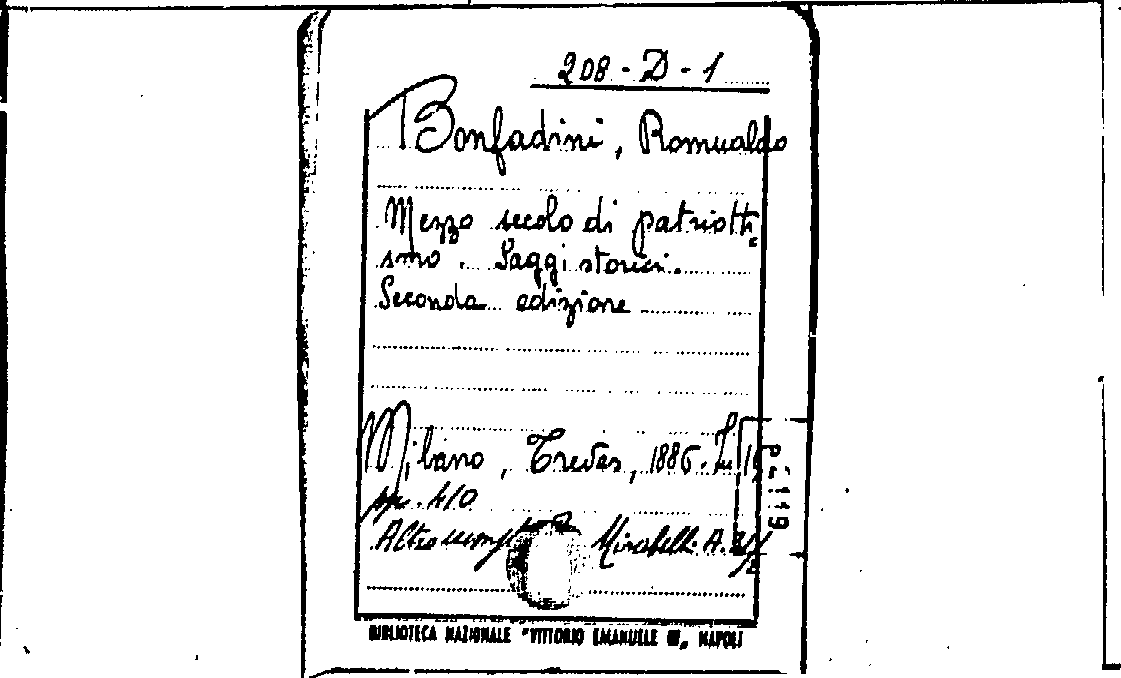 208 - D - 1
Bonfadini, Romualdo
Mezzo secolo di patriotti=
smo. Saggi storici.
Seconda edizione
Milano, Treves, 1886. In 16
pp. 410
Altro Mirabelli A.
BIBLIOTECA NAZIONALE "VITTORIO EMANUELE III" NAPOLI